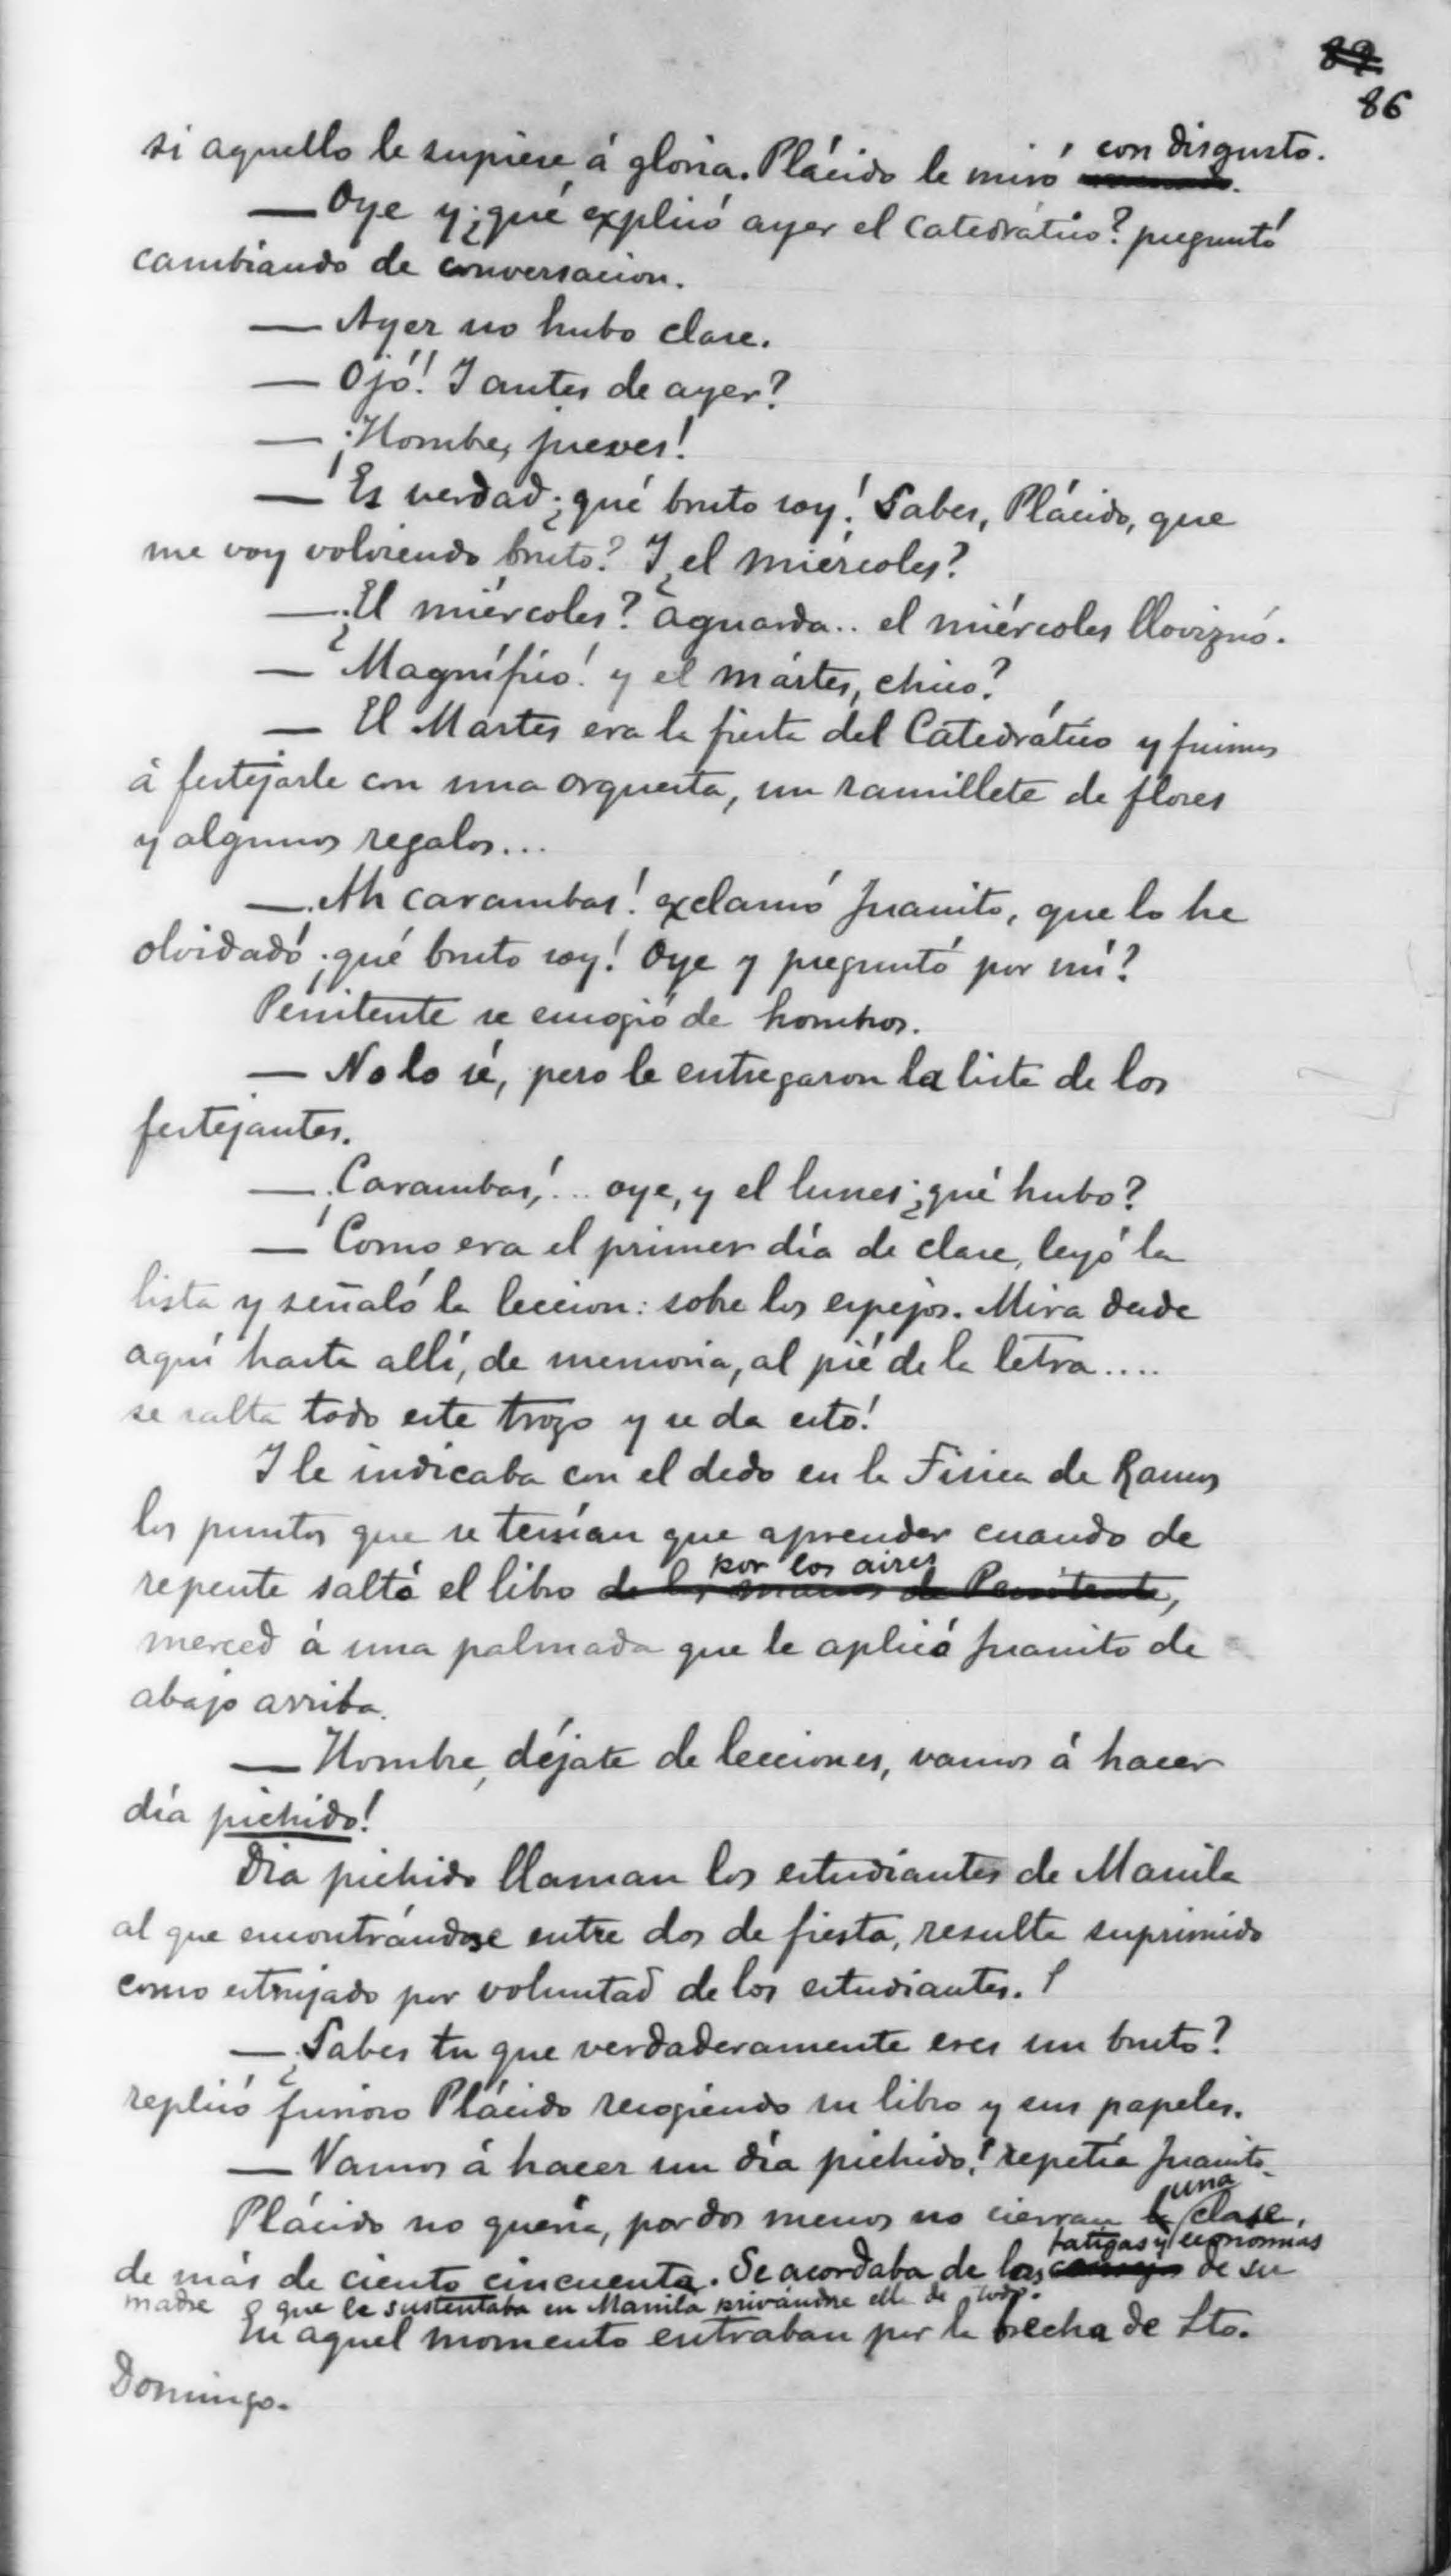 87
86
si aquello le supiese á gloria. Plácido le miró con disgusto.
— Oye y ¿qué explicó ayer el Catedrático? preguntó
cambiando de conversacion.
— Ayer no hubo clase.
— Ojó! Y antes de ayer?
— ¡Hombre, jueves!
— Es verdad ¡qué bruto soy! Sabes, Plácido, que
me voy volviendo bruto? Y ¿el miércoles?
— ¿El miércoles? aguarda.. el miércoles lloviznó.
— Magnífico! y el mártes, chico?
— El Martes era la fiesta del Catedrático y fuimos
á festejarle con una orquesta, un ramillete de flores
y algunos regalos...
— ¡Ah carambas! exclamó Juanito, que lo he
olvidado ¡qué bruto soy! Oye y preguntó por mí?
Penitente se encogió de hombros.
— No lo sé, pero le entregaron la lista de los
festejantes.
— ¡Carambas,!... oye, y el lunes ¿qué hubo?
— Como era el primer día de clase, leyó la
lista y señaló la leccion: sobre los espejos. Mira desde
aquí hasta allí, de memoria, al pié de la letra....
se salta todo este trozo y se da esto!
Y le indicaba con el dedo en la Física de Ramos
los puntos que se tenían que aprender cuando de
por los aires
repente saltó el libro de las manos de Penitente,
merced á una palmada que le aplicó Juanito de
abajo arriba.
— Hombre, déjate de lecciones, vamos á hacer
día pichido!
Dia pichido llaman los estudiantes de Manila
al que encontrándose entre dos de fiesta, resulta suprimido
como estrujado por voluntad de los estudiantes.
— ¿Sabes tu que verdaderamente eres un bruto?
replicó furioso Plácido recogiendo su libro y sus papeles.
— Vamos á hacer un día pichido! repetía Juanito.
una
Plácido no quería, por dos menos no cierran la clase,
fatigas y economías
de más de ciento cincuenta. Se acordaba de las de su
madre que le sustentaba en Manila privándose ella de todo.
En aquel momento entraban por la brecha de Sto.
Domingo.